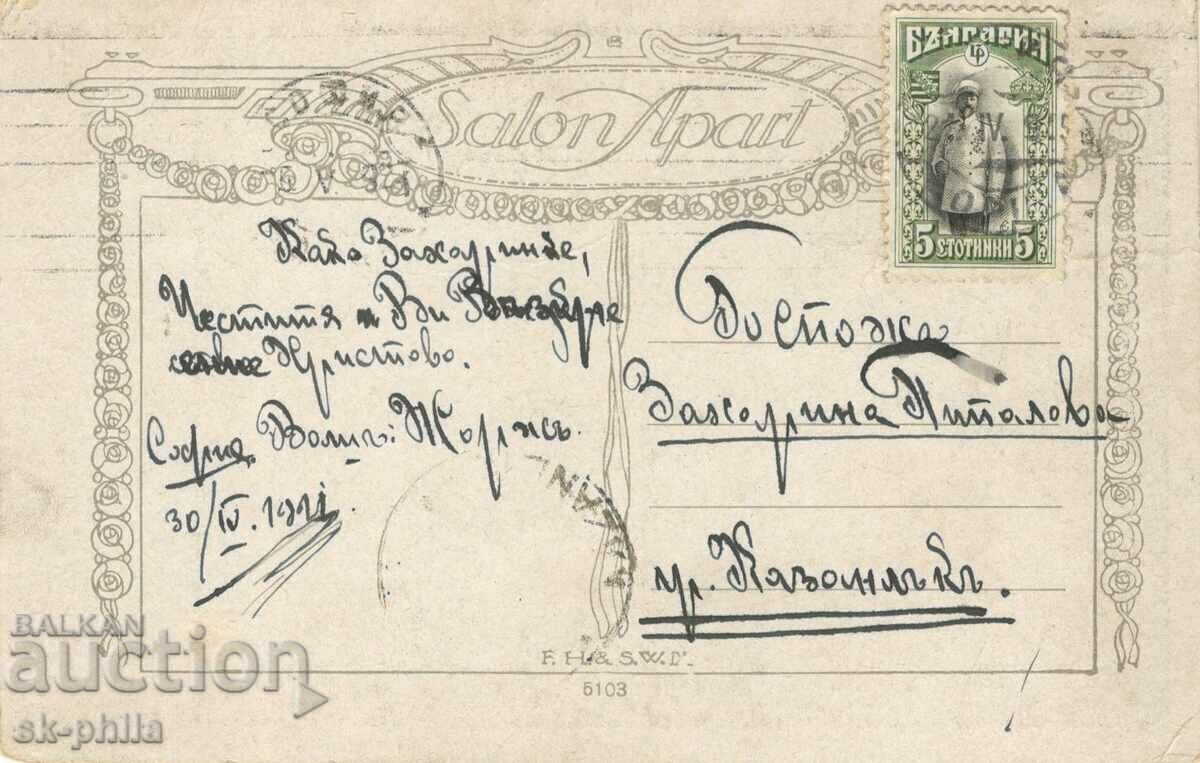 Salon Apart
БЪЛГАРИЯ
5 СТОТИНКИ 5
Како Захаринке,
Честитя и Ви Възкре
сение Христово.
София, Вашъ: Жоржъ.
30/IV. 1911
Госпожа
Захарина Питалова
гр. Казанлъкъ.
F. H. & S. W.
5103
BALKAN
auction
sk-phila